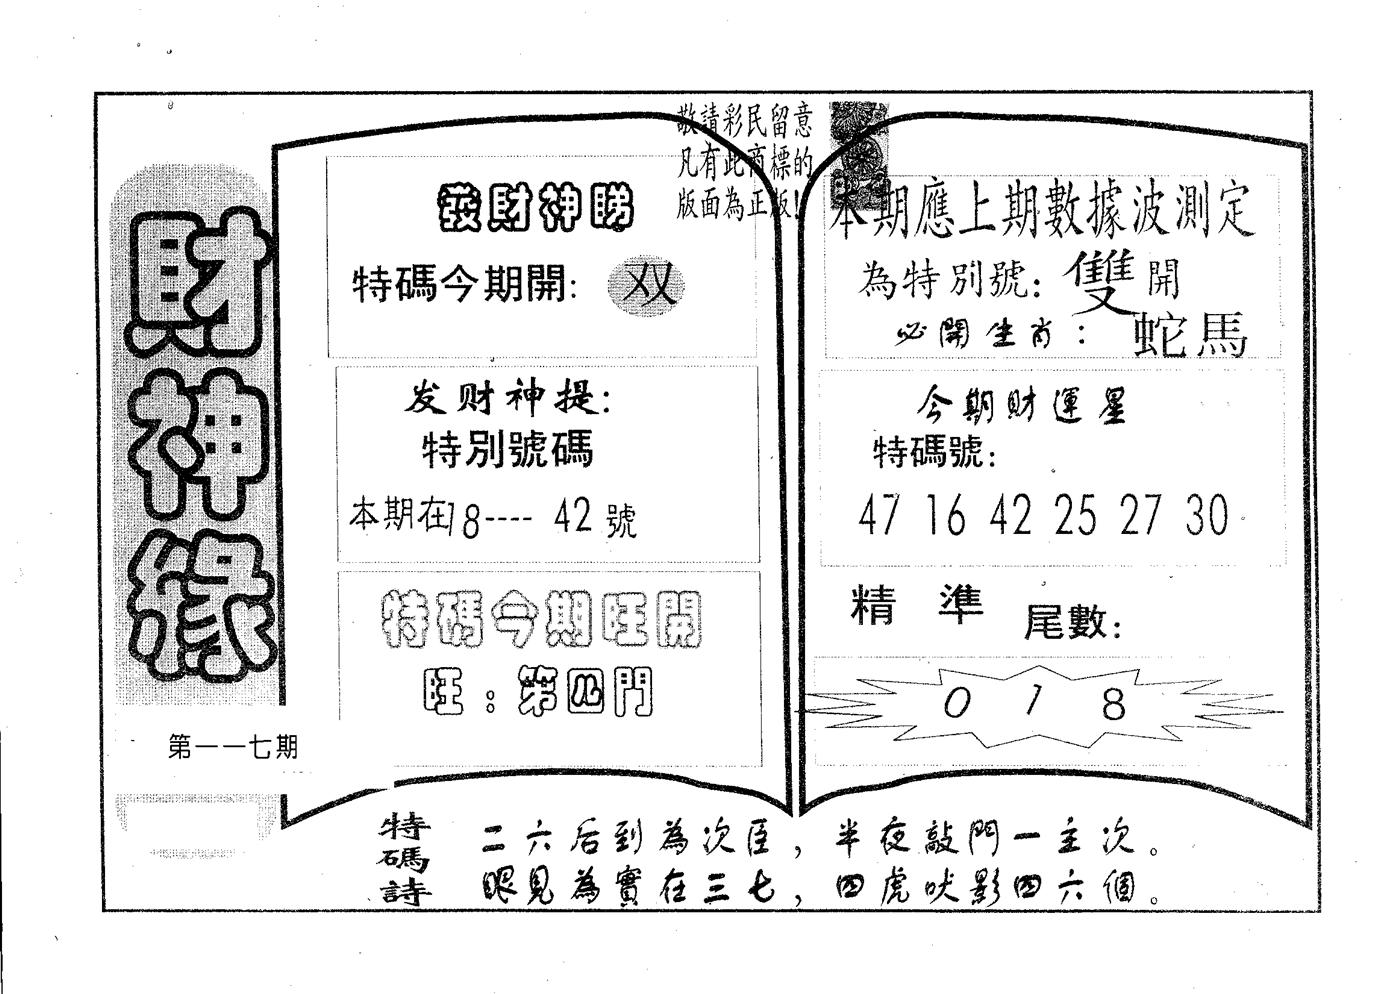 財神緣
第一一七期
敬請彩民留意
凡有此商標的
版面為正版!
發財神賜
特碼今期開: 双
发财神提:
特別號碼
本期在18---- 42號
特碼今期旺開
旺:第四門
本期應上期數據波測定
為特別號:雙開
必開生肖: 蛇馬
今期財運星
特碼號:
47 16 42 25 27 30
精 準 尾數:
0 1 8
特碼詩
二六后到為次臣,半夜敲門一主次。
眼見為實在三七,四虎吠影四六個。